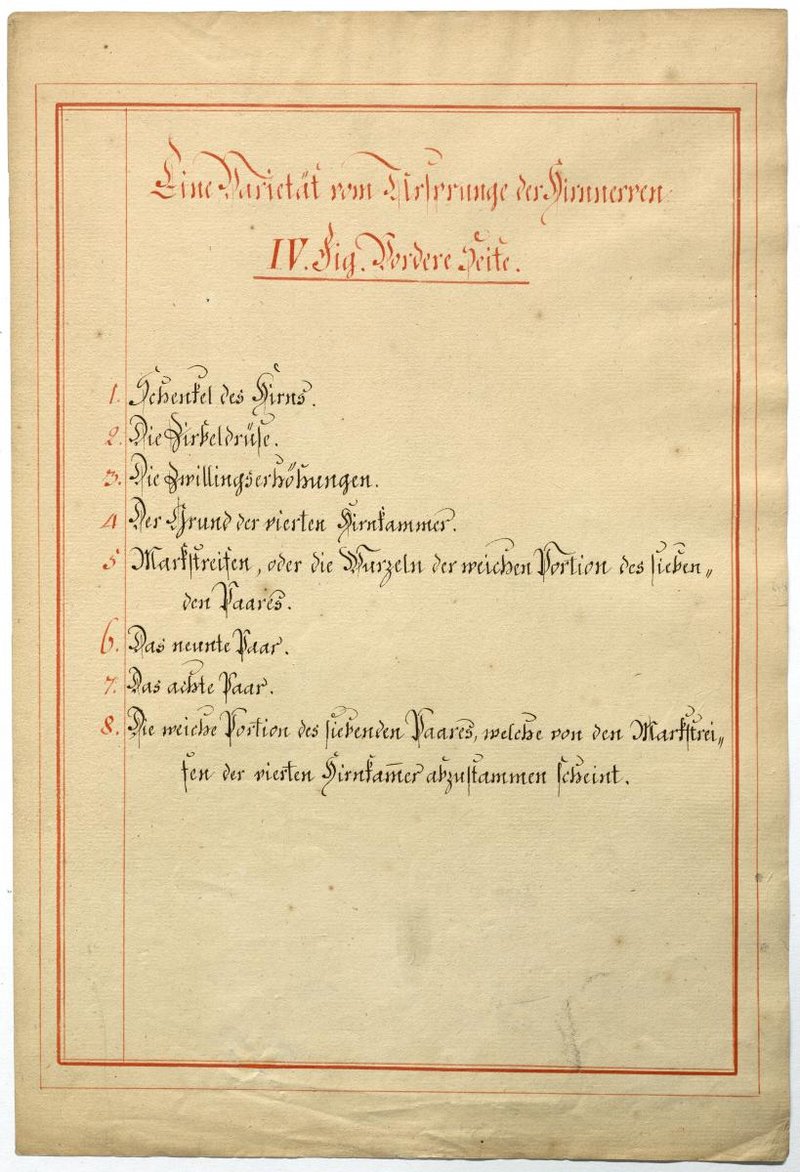 Eine Varietät vom Ursprunge der Hirnnerven
IV. Fig. Vordere Seite.
1. Schenkel des Hirns.
2. Die Zirbeldrüse.
3. Die Zwillingserhöhungen.
4 Der Grund der vierten Hirnkammer.
5 Markstreifen, oder die Wurzeln der weichen Portion des sieben„
den Paares.
6. Das neunte Paar.
7. Das achte Paar.
8. Die weiche Portion des siebenden Paares, welche von den Markstrei„
fen der vierten Hirnkam̅er abzustammen scheint.